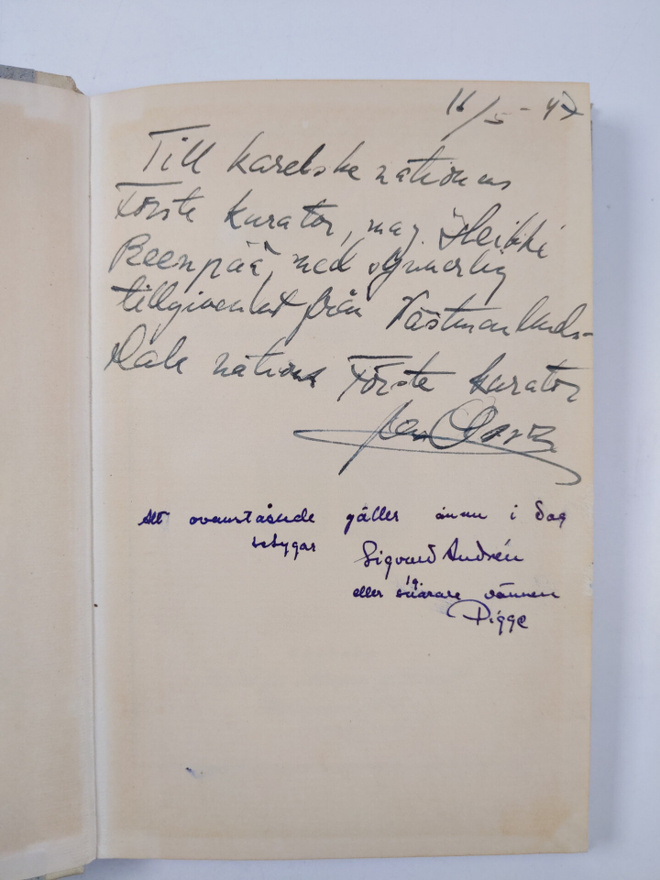 16/5 - 47
Till karelska nationens
Förste kurator, mag. Heikki
Reenpää, med
tillgivenhet från Västmanlands-
Dala nations Förste kurator
Att ovanstående gäller ännu i dag
betygar Sigvard Andrén
eller vännen
Pigge